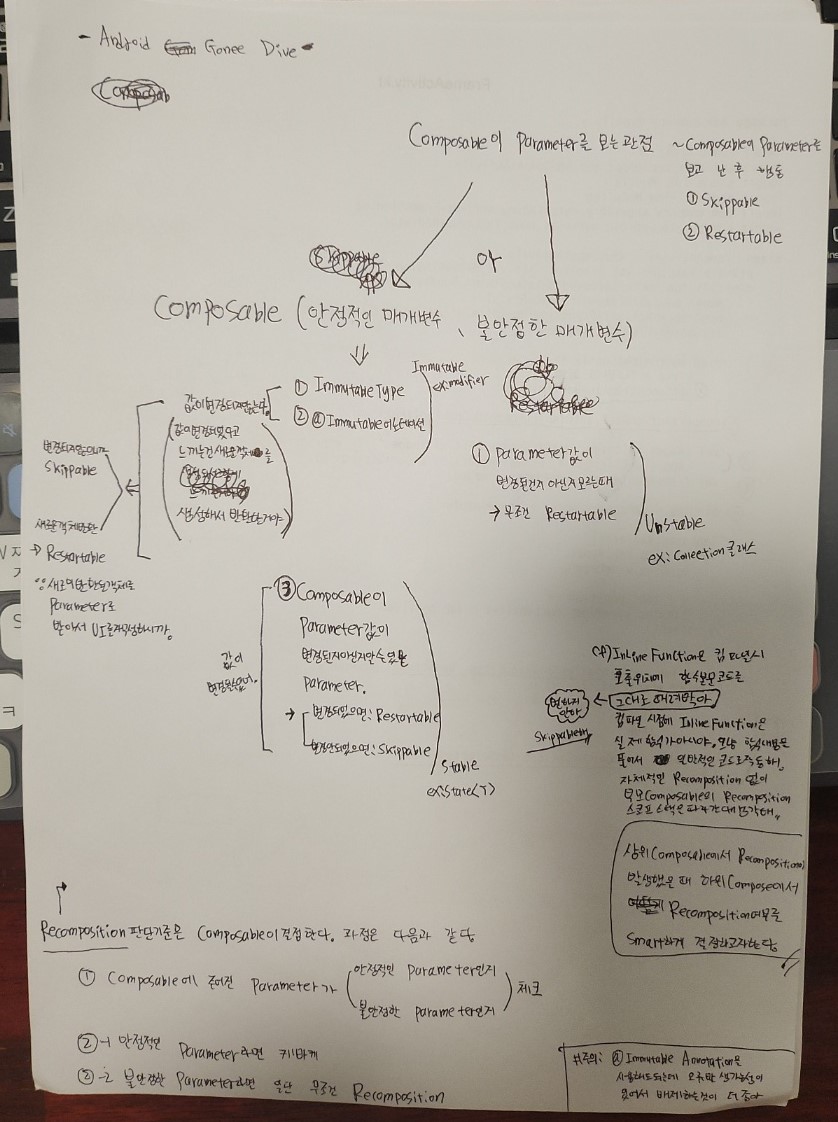 - Android Gonee Dive -
Composable이 Parameter를 보는관점
~Composable의 Parameter를
보고 난 후 행동
① Skippable
② Restartable
or
Composable (안정적인 매개변수 、 불안정한 매개변수)
① ImmutableType
② @Immutable어노테이션
Immutable
ex:modifier
값이변경되지않는다.
(값이변경되었다고
느끼는건 새로운객체를
생성해서 반환한거야)
변경되지않으니까
Skippable
새로운객체반환
→ Restartable
∵새로이반환된객체를
Parameter로
받아서 UI를재구성하니까.
① Parameter값이
변경된건지 아닌지모르는때
→ 무조건 Restartable
Unstable
ex: Collection클래스
③ Composable이
Parameter값이
변경된지아닌지알수있는
Parameter.
→ 변경되었으면: Restartable
변경안되었으면: Skippable
값이
Stable
ex:State<T>
cf) Inline Function은 컴파일시
호출위치에 함수본문코드를
그대로 때려박아
변하지
않아
Skippable해
컴파일 시점에 Inline Function은
실제 함수가아니야, 모냥 함수내용은
풀어서 일반적인 코드로작동해.
자체적인 Recomposition 없이
부모Composable의 Recomposition
상위Composable에서 Recomposition이
발생했을 때 하위Compose에서
Recomposition여부를
Smart하게 결정하고자한다
Recomposition 판단기준은 Composable이결정한다. 과정은 다음과 같다
① Composable에 주어진 Parameter가
안정적인 Parameter인지
불안정한 parameter인지
체크
②-1 안정적인 Parameter라면
②-2 불안정한 Parameter라면 일단 무조건 Recomposition
#주의: @Immutable Annotation은
사용해도되는데 오류만 생길가능성이
있어서 배제하는것이 더 좋아